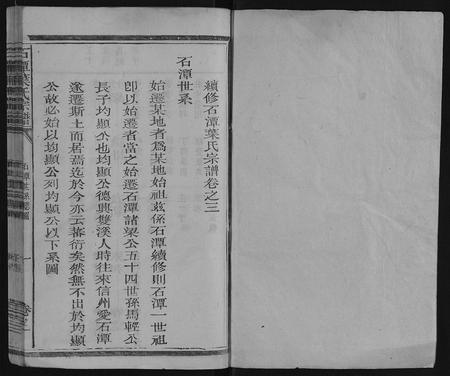 續修石潭葉氏宗譜卷之三
石潭世系
始遷某地者爲某地始祖兹係石潭續修則石潭一世祖
卽以始遷者當之始遷石潭諸梁公五十四世孫馬輕公
長子均顯公也均顯公德興雙溪人時往來信州愛石潭
遂遷斯土而居焉迄於今亦云蕃衍矣然無不出於均顯
公故必始以均顯公列均顯公以下系圖
石潭葉氏宗譜
石潭世系圖
一
卷三